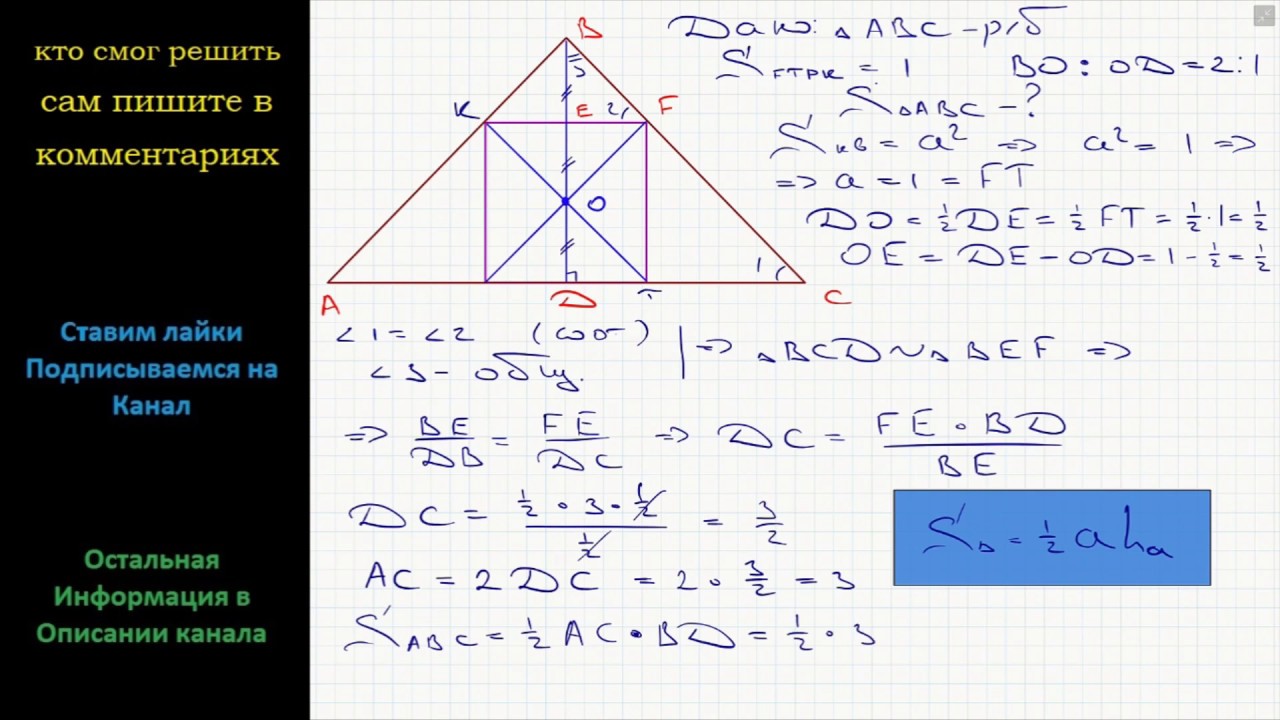 кто смог решить
сам пишите в
комментариях
Ставим лайки
Подписываемся на
Канал
Остальная
Информация в
Описании канала
B
K E 2 F
3
O
1
A D T C
Дано: △ABC – р/б
S FTPK = 1 BO : OD = 2:1
S△ABC – ?
Sкв = a² => a² = 1 =>
=> a = 1 = FT
DO = 1/2 DE = 1/2 FT = 1/2 · 1 = 1/2
OE = DE – OD = 1 – 1/2 = 1/2
∠1 = ∠2 (соот) | => △BCD ~ △BEF =>
∠3 – общ.
=> BE/DB = FE/DC => DC = FE · BD / BE
DC = 1/2 · 3 · 1/2 / 1/2 = 3/2
AC = 2DC = 2 · 3/2 = 3
S ABC = 1/2 AC · BD = 1/2 · 3
S△ = 1/2 a hₐ